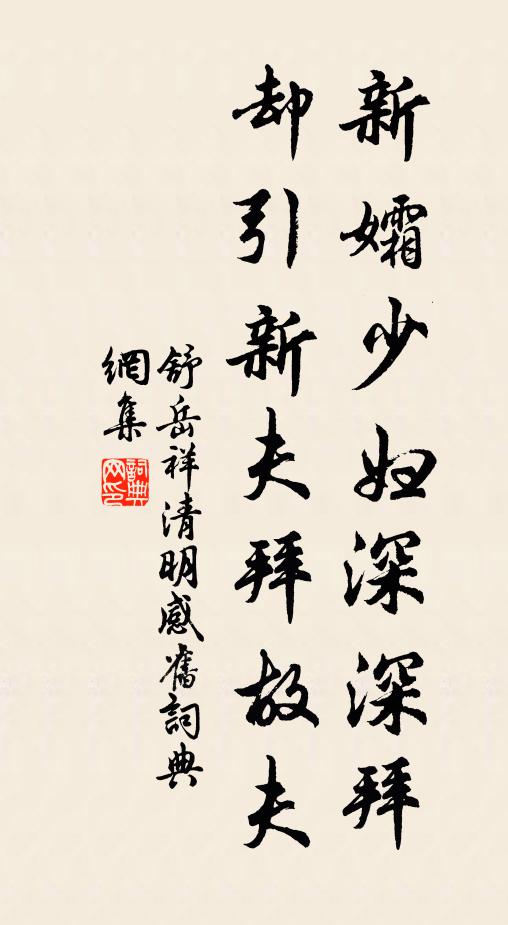 新孀少妇深深拜
却引新夫拜故夫
舒岳祥清明感舊詞典
網集
詞典网印